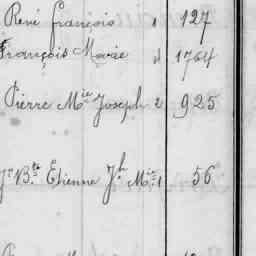 René François 1 127
François Marie 1764
Pierre M^ie Joseph 2 925
J^n B^te Etienne J^h M^ie 1 56